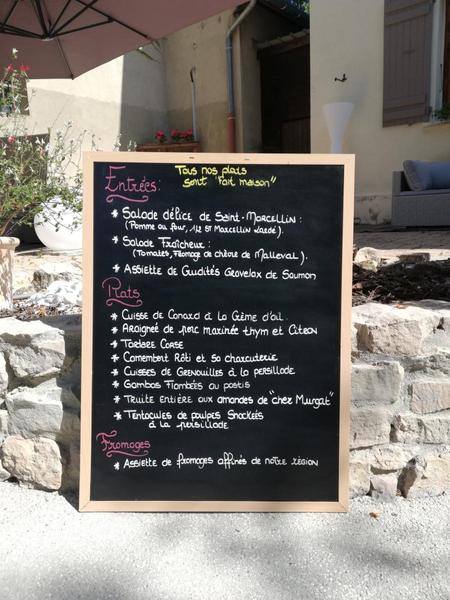 Tous nos plats
sont "fait maison"
Entrées:
* Salade délice de Saint-Marcellin :
(Pomme au four, 1/2 St Marcellin Lardé).
* Salade Fraîcheur :
(Tomates, Fromage de chèvre de Malleval).
* Assiette de Crudités Gravelax de Saumon
Plats
* Cuisse de Canard à la Crème d'ail.
* Araignée de porc marinée thym et Citron
* Tartare Corse
* Camembert Rôti et sa charcuterie
* Cuisses de Grenouilles à la persillade
* Gambas Flambées au pastis
* Truite Entière aux amandes de "chez Murgat"
* Tentacules de poulpes Snackées
à la persillade
Fromages
* Assiette de fromages affinés de notre région